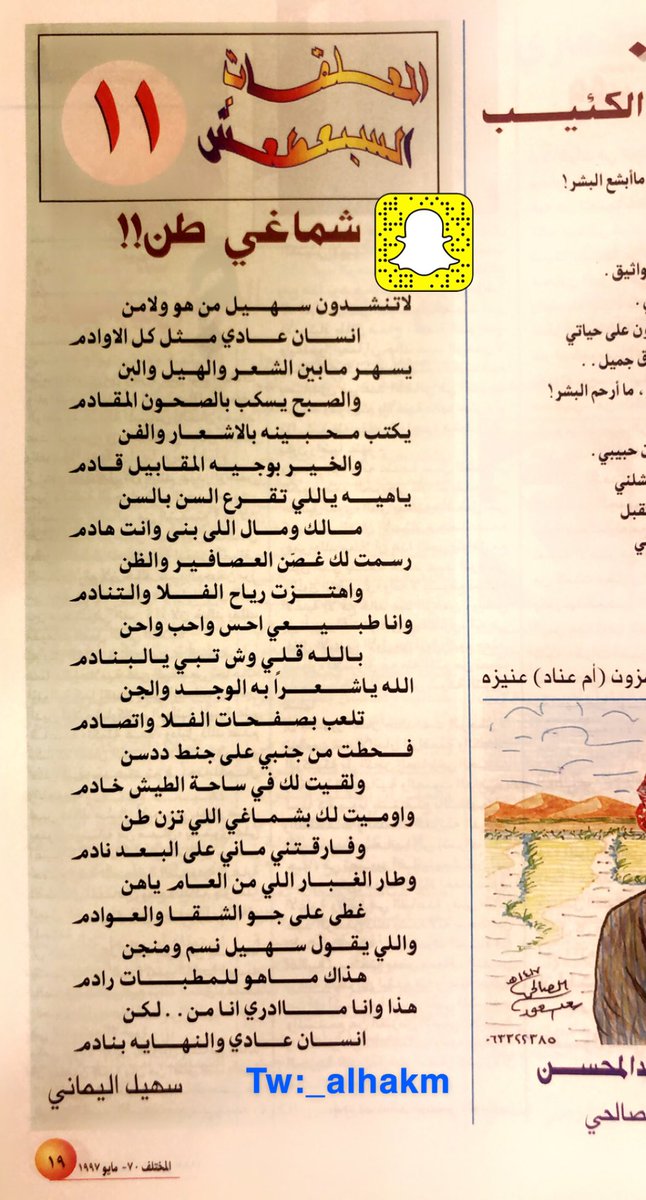 المعلقات
السبعطعش
١١
شماغي طن!!
لاتنشدون سهيل من هو ولامن
انسان عادي مثل كل الاوادم
يسهر مابين الشعر والهيل والبن
والصبح يسكب بالصحون المقادم
يكتب محبينه بالاشعار والفن
والخير بوجيه المقابيل قادم
ياهيه ياللي تقرع السن بالسن
مالك ومال اللى بنى وانت هادم
رسمت لك غصَن العصافير والظن
واهتزت رياح الفلا والتنادم
وانا طبيعي احس واحب واحن
بالله قلي وش تبي يالبنادم
الله ياشعراً به الوجد والجن
تلعب بصفحات الفلا واتصادم
فحطت من جنبي على جنط ددسن
ولقيت لك في ساحة الطيش خادم
واوميت لك بشماغي اللي تزن طن
وفارقتني ماني على البعد نادم
وطار الغبار اللي من العام ياهن
غطى على جو الشقا والعوادم
واللي يقول سهيل نسم ومنجن
هذاك ماهو للمطبات رادم
هذا وانا مااادري انا من . . لكن
انسان عادي والنهايه بنادم
سهيل اليماني
Tw:_alhakm
المختلف ٧٠- مايو ١٩٩٧
١٩
الكئيب
ماأبشع البشر!
واثيق .
ون على حياتي
ق جميل . .
، ما أرحم البشر!
ن حبيبي .
شلني
قبل
مزون (أم عناد) عنيزه
الصالحي
٠٦٣٢٢٣٨٥
دالمحسن
صالحي